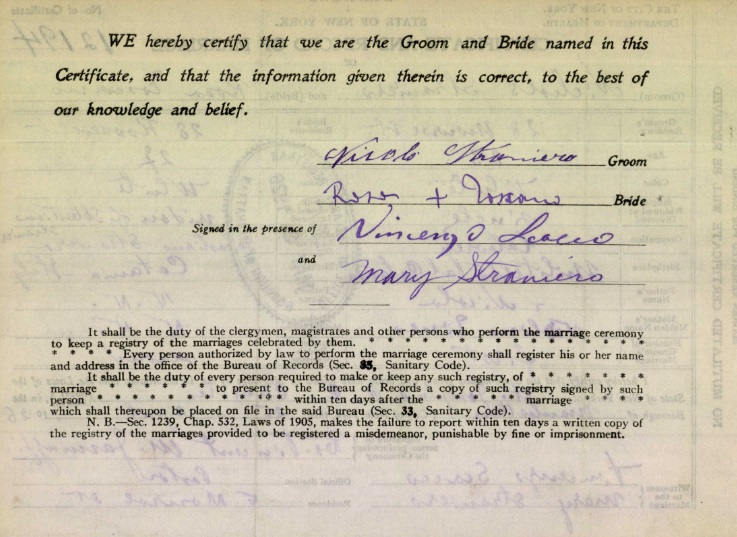 WE hereby certify that we are the Groom and Bride named in this
Certificate, and that the information given therein is correct, to the best of
our knowledge and belief.
Nicolo Straniero Groom
Rosa + Toscano Bride
Signed in the presence of Vincenzo Scacco
and
Mary Straniero
It shall be the duty of the clergymen, magistrates and other persons who perform the marriage ceremony
to keep a registry of the marriages celebrated by them. * * * * * * * * * * * * * * * *
* * * * Every person authorized by law to perform the marriage ceremony shall register his or her name
and address in the office of the Bureau of Records (Sec. 33, Sanitary Code).
It shall be the duty of every person required to make or keep any such registry, of * * * * * *
marriage * * * * * to present to the Bureau of Records a copy of such registry signed by such
person * * * * * * * * * * * within ten days after the * * * * * marriage * * * *
which shall thereupon be placed on file in the said Bureau (Sec. 33, Sanitary Code).
N. B.—Sec. 1239, Chap. 532, Laws of 1905, makes the failure to report within ten days a written copy of
the registry of the marriages provided to be registered a misdemeanor, punishable by fine or imprisonment.